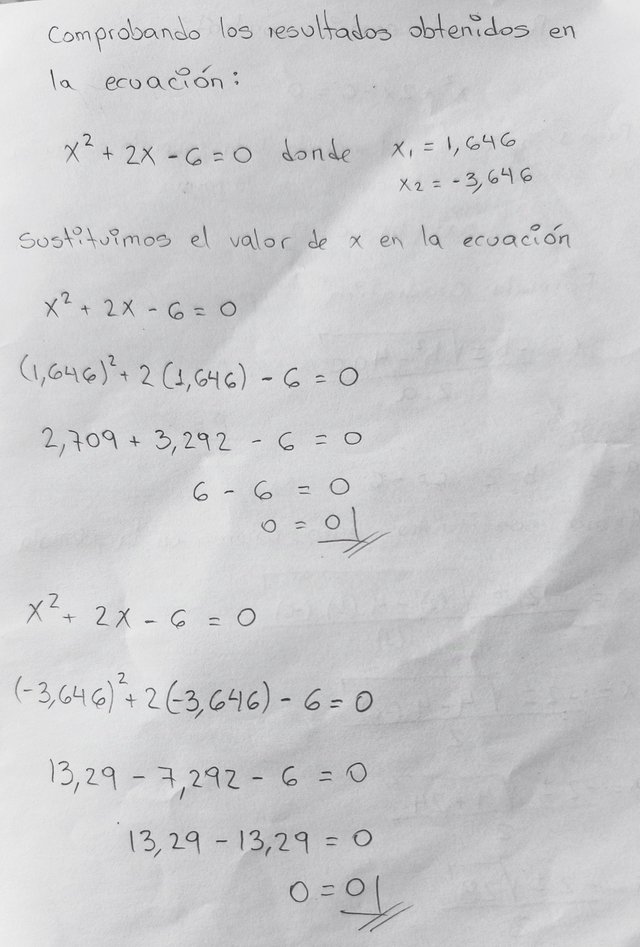 Comprobando los resultados obtenidos en
la ecuación:
x² + 2x - 6 = 0 donde x₁ = 1,646
x₂ = -3,646
Sustituimos el valor de x en la ecuación
x² + 2x - 6 = 0
(1,646)² + 2(1,646) - 6 = 0
2,709 + 3,292 - 6 = 0
6 - 6 = 0
0 = 0
x² + 2x - 6 = 0
(-3,646)² + 2(-3,646) - 6 = 0
13,29 - 7,292 - 6 = 0
13,29 - 13,29 = 0
0 = 0